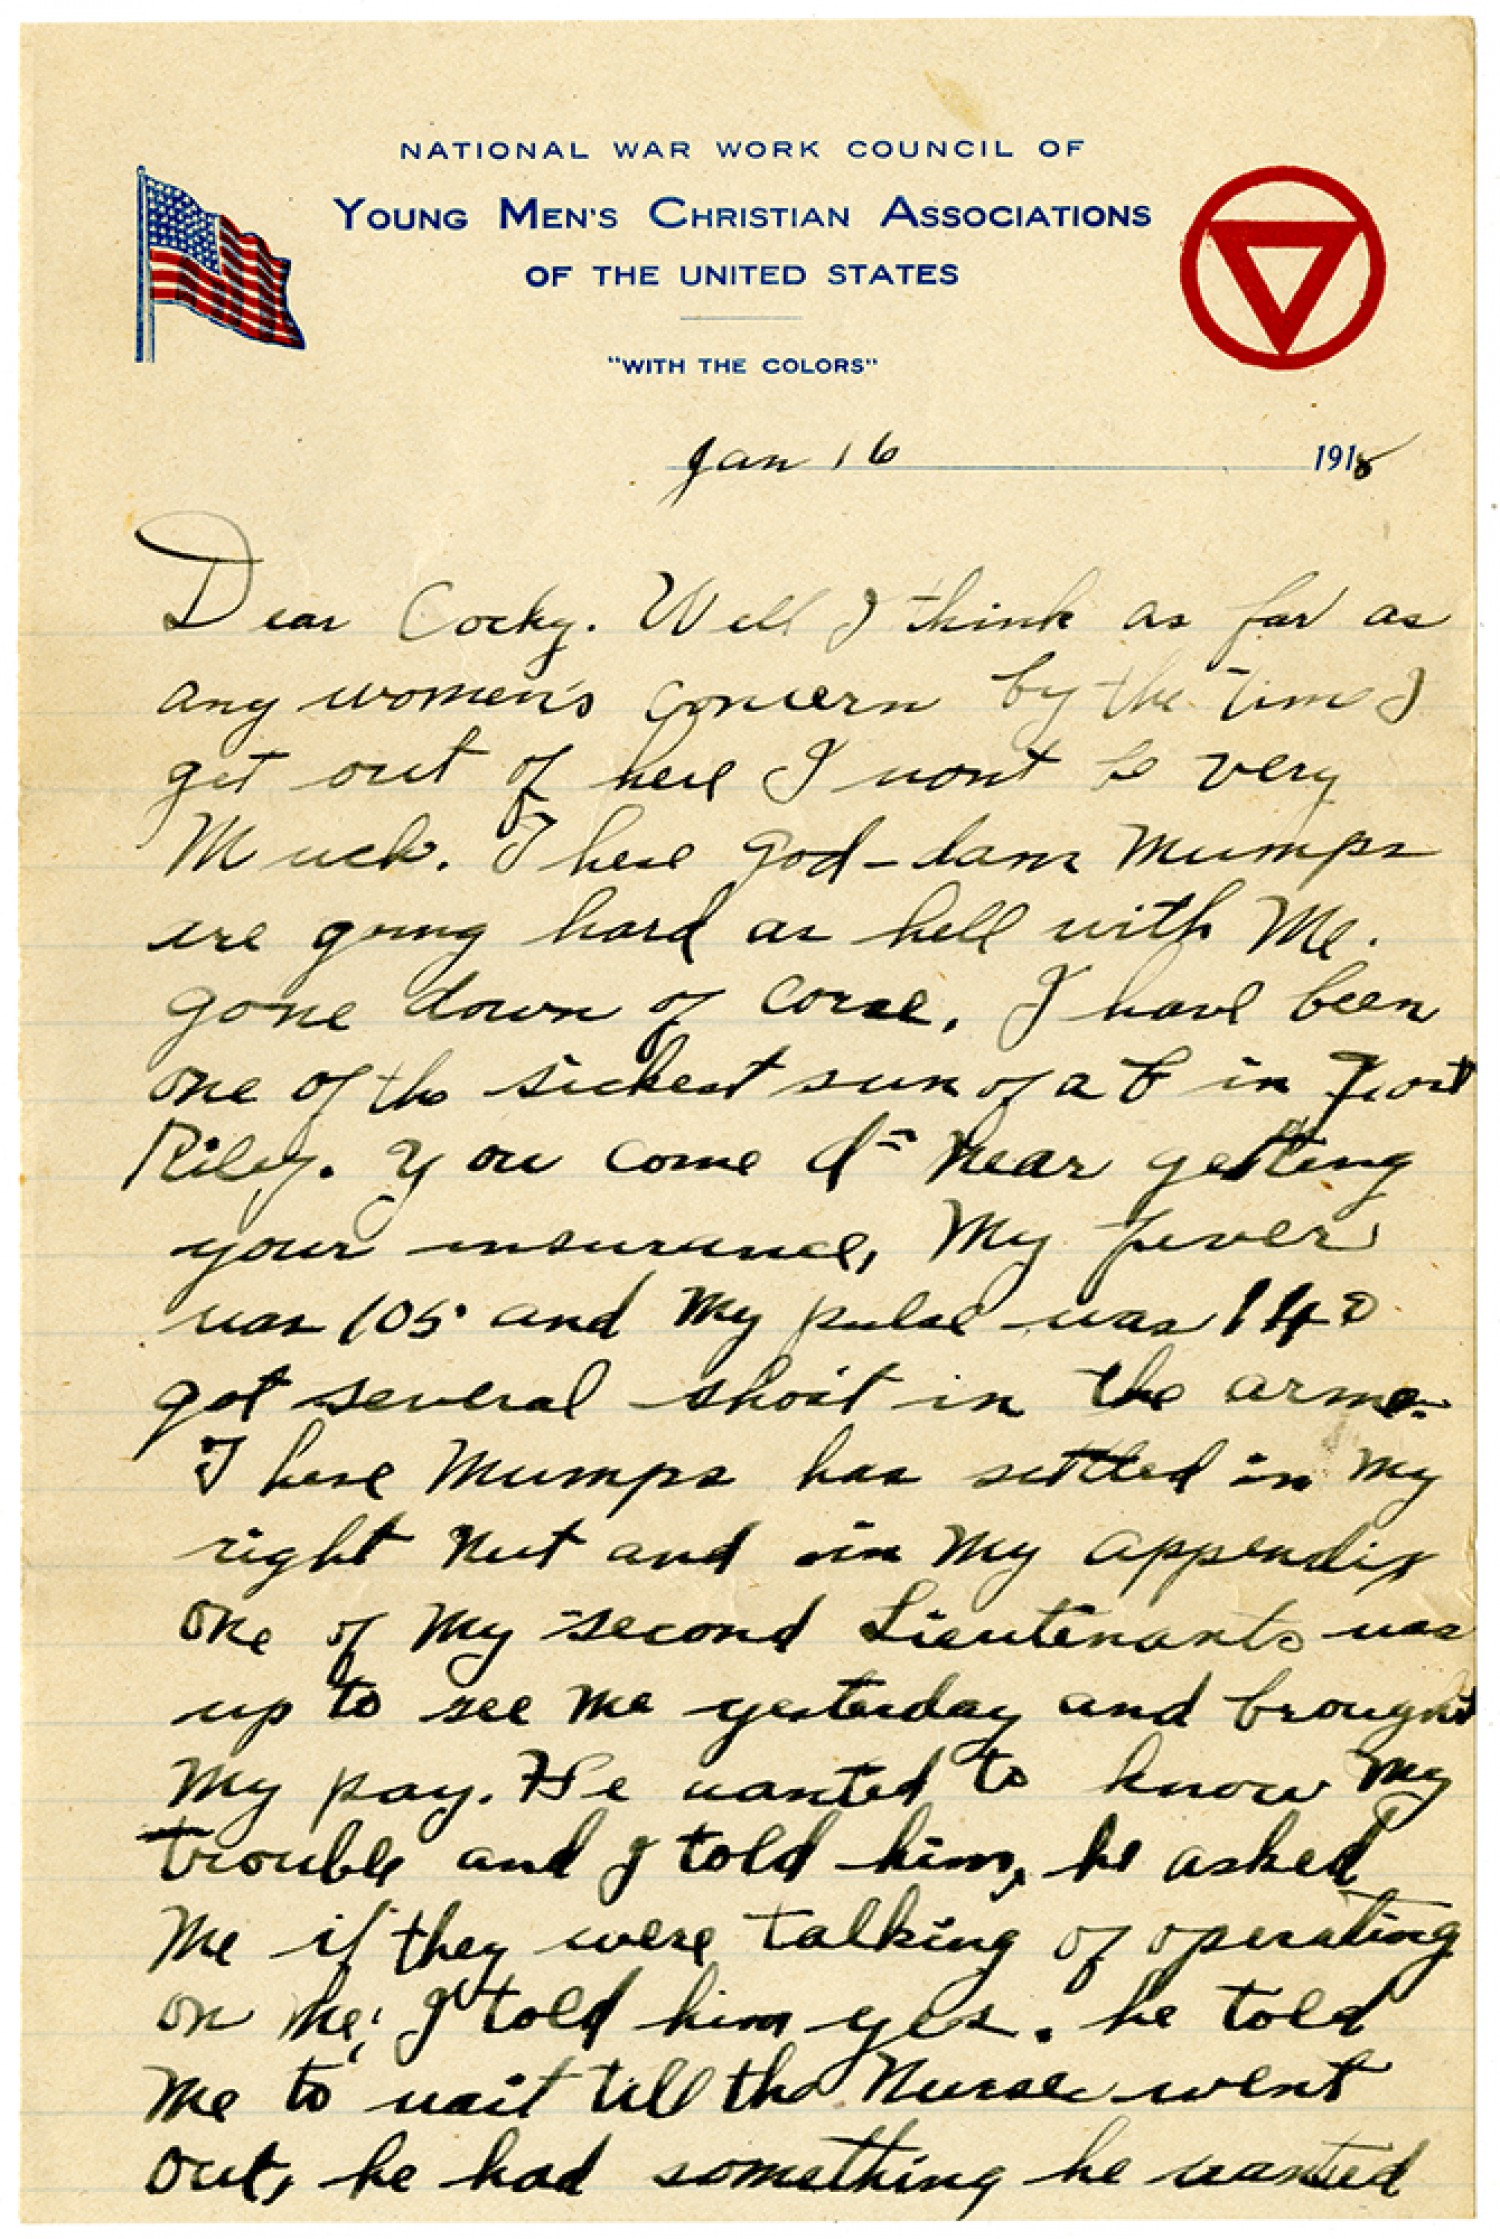 NATIONAL WAR WORK COUNCIL OF
YOUNG MEN'S CHRISTIAN ASSOCIATIONS
OF THE UNITED STATES
"WITH THE COLORS"
Jan 16 1918
Dear Cocky. Well I think as far as
any women's concern by the time I
get out of here I wont be very
Much. These God-dam Mumps
are going hard as hell with Me.
gone down of corse, I have been
one of the sickest sun of a B in Fort
Riley. You come d- near getting
your insurance, My fever
was 105 and My pulse was 140
got several shoit in the arme.
These Mumps has settled in My
right Nut and in My appendix
one of My second Lieutenants was
up to see Me yesterday and brought
My pay. He wanted to know My
trouble and I told him, he asked
Me if they were talking of operating
on Me, I told him yes. he told
Me to wait till the Nurse went
out, he had something he wanted